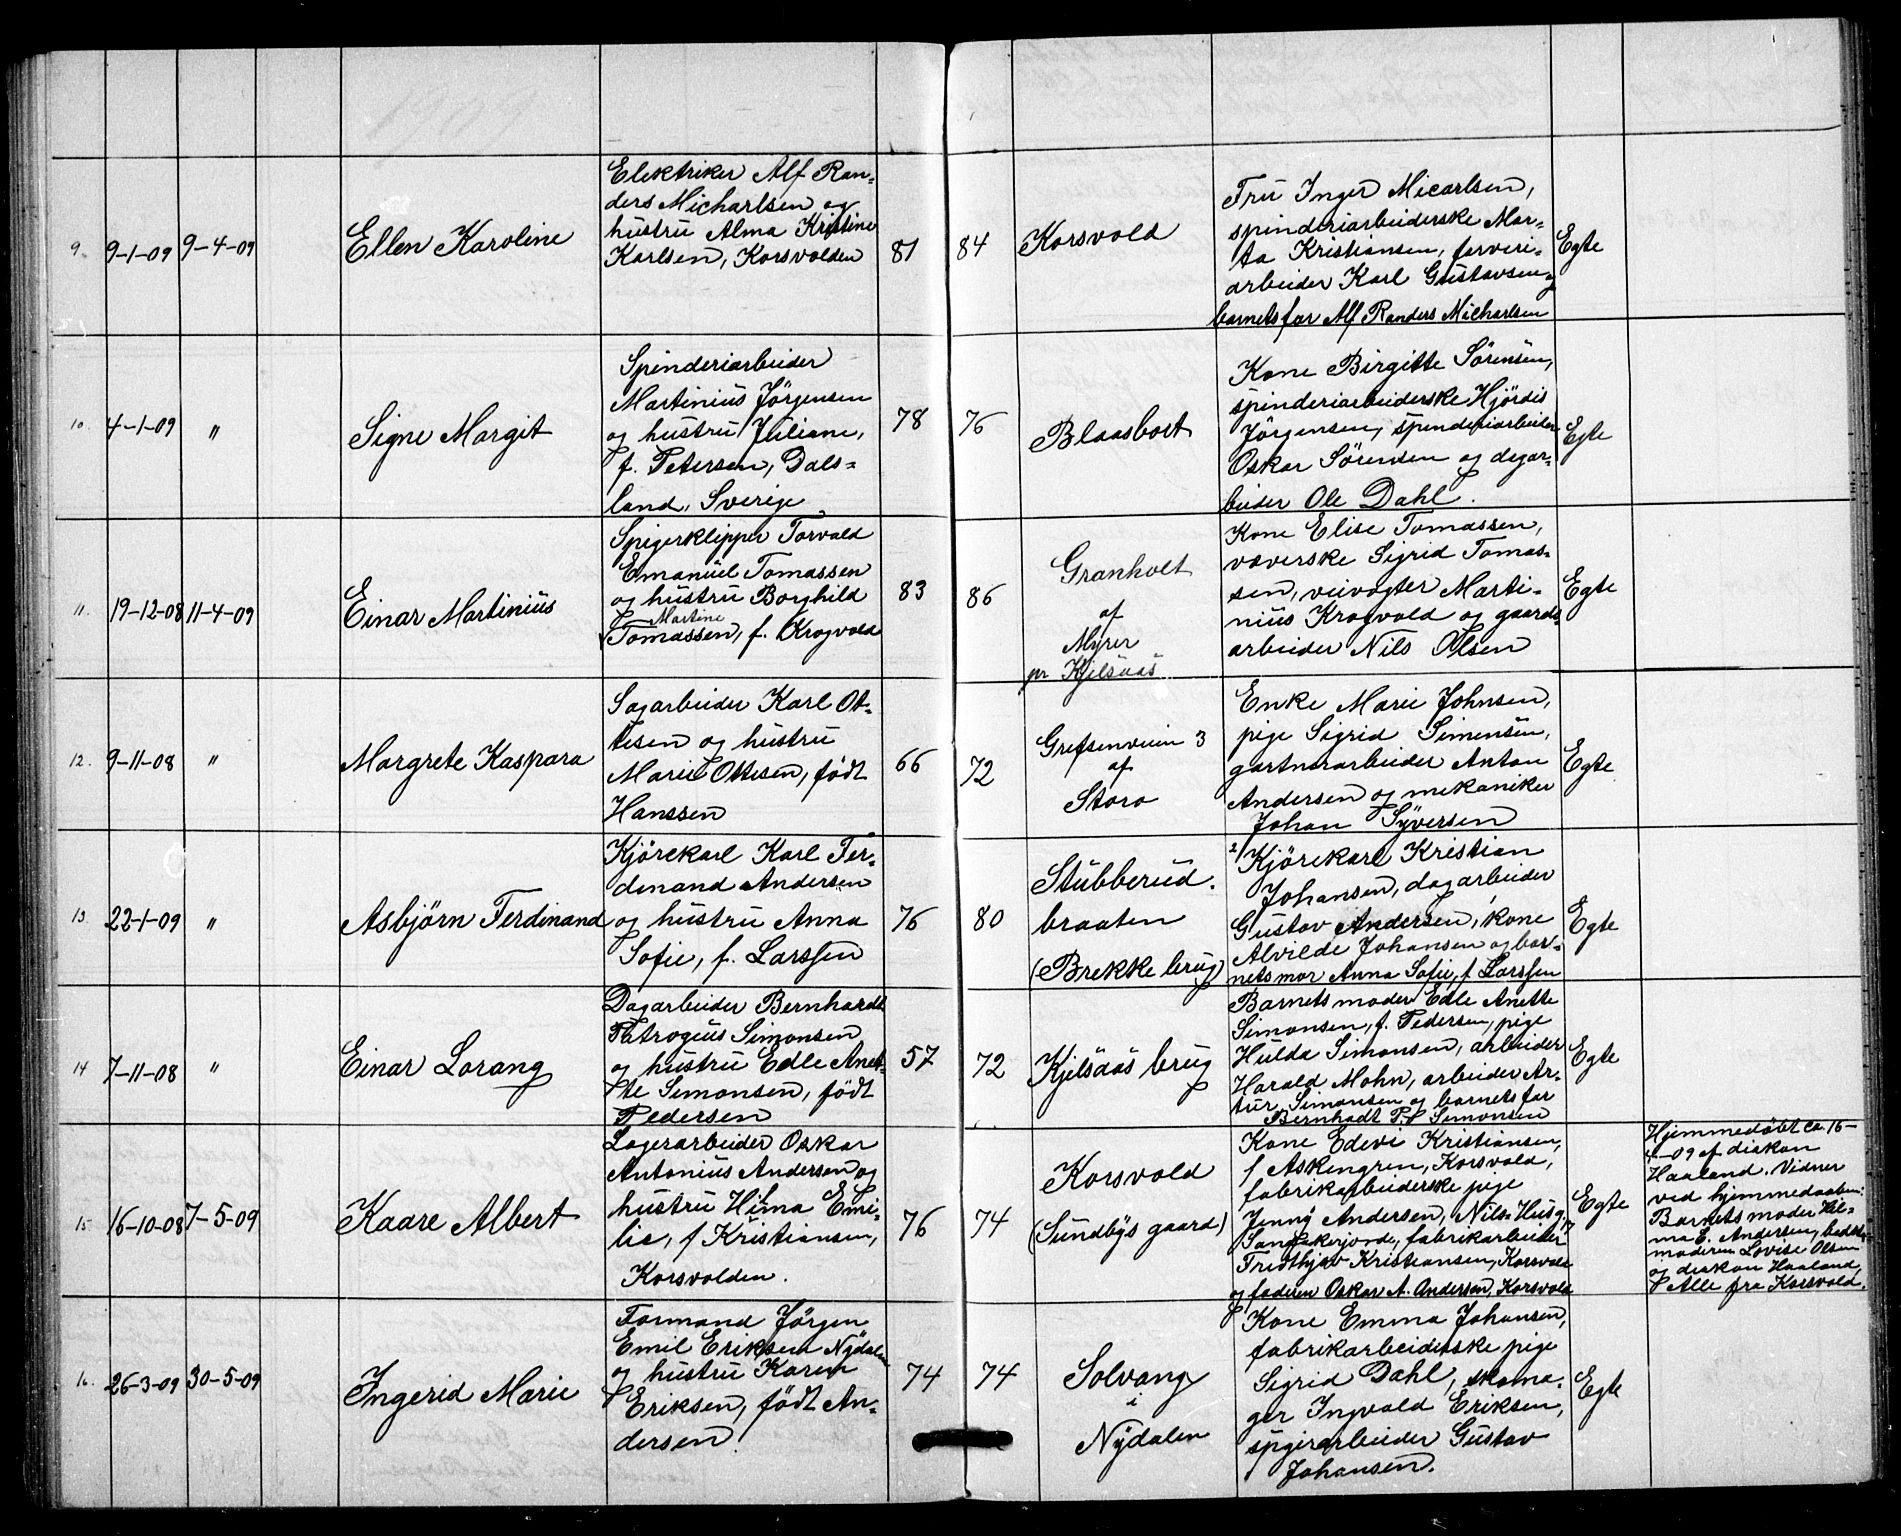 9.
9-1-09
9-4-09
Ellen Karoline
Elektriker Alf Ran=
ders Micharlsen og
hustru Alma Kristine
Karlsen, Korsvolden
81
84
Korsvold
Fru Inger Micarlsen,
spinderiarbeiderske Mar=
ta Kristiansen, farveri=
arbeider Karl Gustavsen og
barnets far Alf Randers Micharlsen
Egte
10.
4-1-09
"
Signe Margit
Spinderiarbeider
Martinius Jørgensen
og hustru Juliane,
f. Petersen, Dals=
land, Sverige
78
76
Blaasbort
Kone Birgitte Sörensen,
spinderiarbeiderske Hjördis
Jörgensen, spinderiarbeider
Oskar Sörensen og dagar=
beider Ole Dahl.
Egte
11.
19-12-08
11-4-09
Einar Martinius
Spigerklipper Torvald
Emanuel Tomassen
og hustru Borghild
Martine
Tomassen, f. Krogvold
83
86
Granholt
af
Myrer
pr Kjelsaas
Kone Elise Tomassen,
væverske Sigrid Tomas=
sen, veivogter Marti=
nius Krogvold og gaards=
arbeider Nils Olsen
Egte
12.
9-11-08
"
Margrete Kaspara
Sagarbeider Karl Ot=
tesen og hustru
Marie Ottesen, født
Hanssen
66
72
Grefsenveien 3
af
Storo
Enke Marie Johnsen,
pige Sigrid Simensen,
gartnerarbeider Anton
Andersen og mekaniker
Johan Syversen
Egte
13.
22-1-09
"
Asbjörn Ferdinand
Kjörekarl Karl Fer=
dinand Andersen
og hustru Anna
Sofie, f. Larssen
76
80
Stubberud.
braaten
(Brekke brug)
Kjörekarl Kristian
Johansen, dagarbeider
Gustav Andersen, kone
Alvilde Johansen og bar=
nets mor Anna Sofie, f. Larssen
Egte
14
7-11-08
"
Einar Lorang
Dagarbeider Bernhardt
Patrogius Simonsen
og hustru Edle Anet=
te Simonsen, født
Pedersen
57
72
Kjelsaas brug
Barnets moder Edle Anette
Simonsen, f. Pedersen, pige
Hulda Simonsen, arbeider
Harald Mohn, arbeider Ar=
tur Simonsen og barnets far
Bernhadt P. Simonsen
Egte
15
16-10-08
7-5-09
Kaare Albert
Lagerarbeider Oskar
Antonius Andersen og
hustru Hilma Emi=
lie, f Kristiansen,
Korsvolden.
76
74
Korsvold
(Sundbys gaard)
Kone Edevi Kristiansen,
f Askengren, Korsvold,
fabrikarbeiderske pige
Jenny Andersen, Nils Husg,
fabrikarbeider
Fredthjov Kristiansen, Korsvold
og faderen Oskar A. Andersen, Korsvold
Egte
Hjemmedøbt ca. 16-
4-09 af diakon
Haaland. Vidner
ved hjemmedaaben:
Barnets moder Hil=
ma E. Andersen, bedste
moderen Lovise Olsen
og diakon Haaland,
Alle fra Korsvold.
16.
26-3-09
30-5-09
Ingerid Marie
Formand Jörgen
Emil Eriksen Nydalen
og hustru Karen
Eriksen, født An=
dersen.
74
74
Solvang
i
Nydalen
Kone Emma Johansen,
fabrikarbeiderske pige
Sigrid Dahl, skoma=
ger Ingvald Eriksen,
spigerarbeider Gustav
Johansen.
Egte